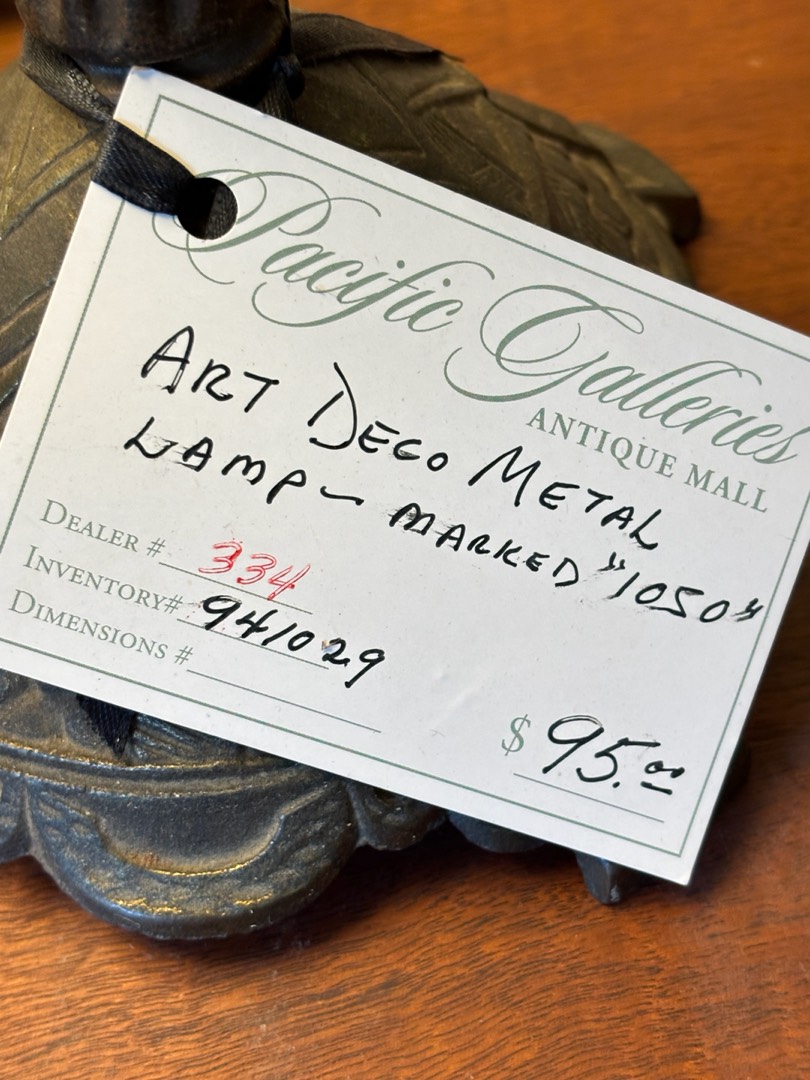 Pacific Galleries
ANTIQUE MALL
ART DECO METAL
LAMP ~ MARKED "1050"
DEALER # 334
INVENTORY# 941029
DIMENSIONS #
$ 95.00